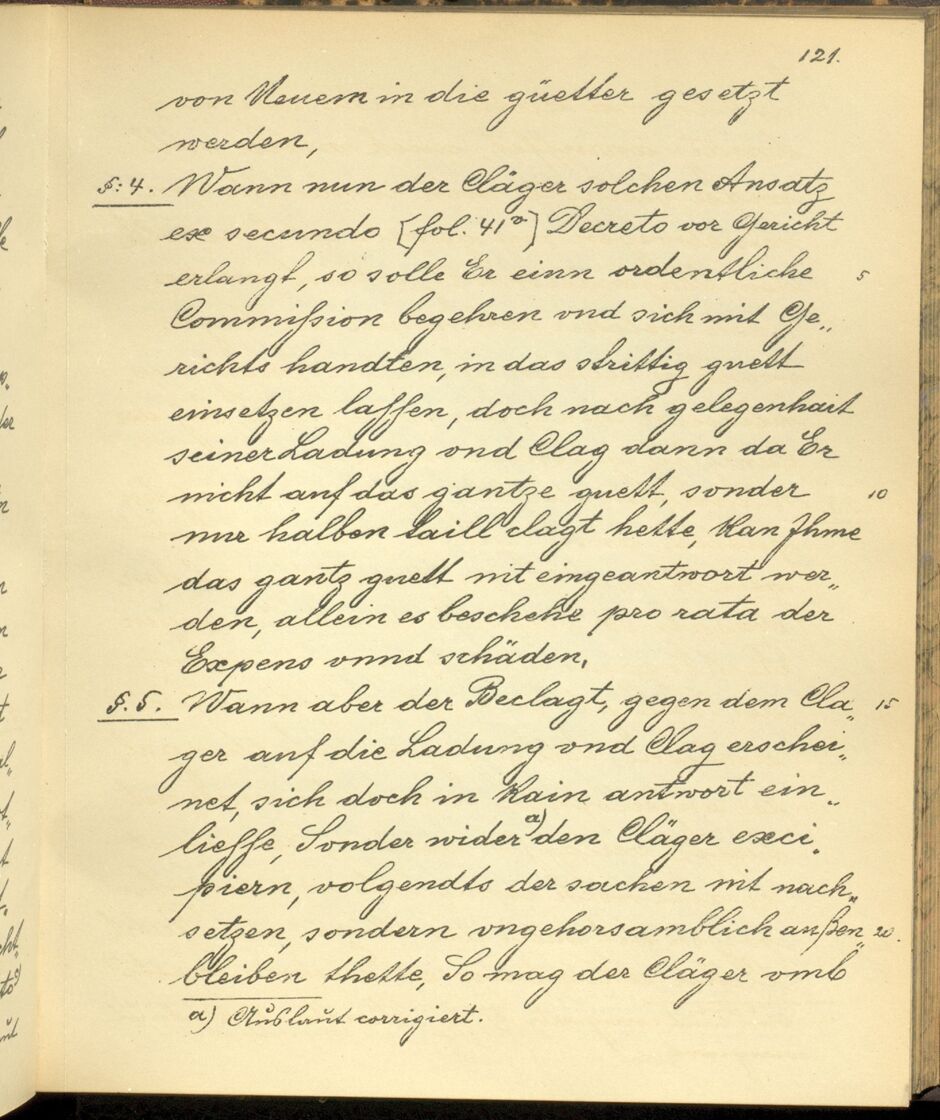 121.
von Neuem in die güetter gesetzt
werden,
§: 4. Wann nun der Cläger solchen Ansatz
ex secundo [fol. 41v] Decreto vor Gericht
erlangt, so solle Er einn ordentliche 5
Commißion begehren vnd sich mit Ge„
richts handten, in das strittig guett
einsetzen lassen, doch nach gelegenhait
seiner Ladung vnd Clag dann da Er
nicht auf das gantze guett, sonder 10
nur halben taill clagt hette, Kan Ihme
das gantz guett nit eingeantwort wer„
den, allein es beschehe pro rata der
Expens vnnd schäden,
§. 5. Wann aber der Beclagt, gegen dem Cla„ 15
ger auf die Ladung vnd Clag erschei„
net, sich doch in Kain antwort ein„
liesse, Sonder wider a) den Cläger exci„
piern, volgendts der sachen nit nach„
setzen, sondern vngehorsamblich außen„ 20.
bleiben thette, So mag der Cläger vmb
a) Auslaut corrigiert.